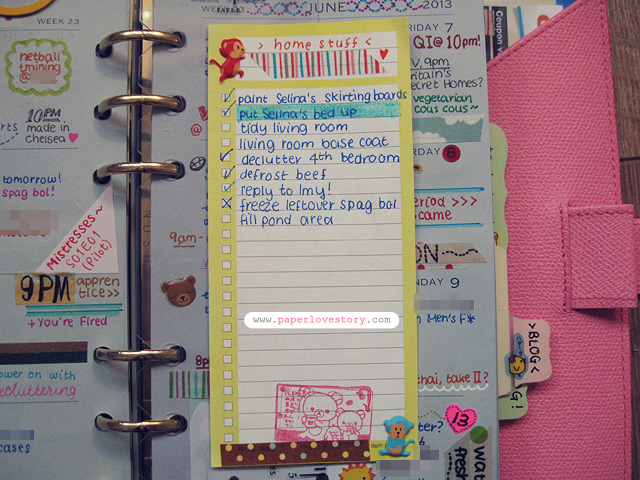 WEEK 23
netball
training
@
10PM
made in
chelsea
tomorrow!
spag bol!
Mistresses~
S01E01
(Pilot)
9PM appren
tice>>
+You're Fired
ower on with
ecluttering
cases
WEEK
9am-
8p
JUNE 2013
> home stuff <
paint Selina's skirting boards
put Selina's bed up
tidy living room
living room base coat
declutter 4th bedroom
defrost beef
reply to Imy!
freeze leftover spag bol
fill pond area
www.paperlovestory.com
item
RIDAY 7
QI@ 10pm!
9pm
ritain's
ecret Homes?
vegetarian
cous cous~
RDAY 8
eriod >>>
came
ON
NDAY 9
Men's F*
thai, take II?
13
ter?
6
wat
fresh
Coupon v
>BLOG<
G!